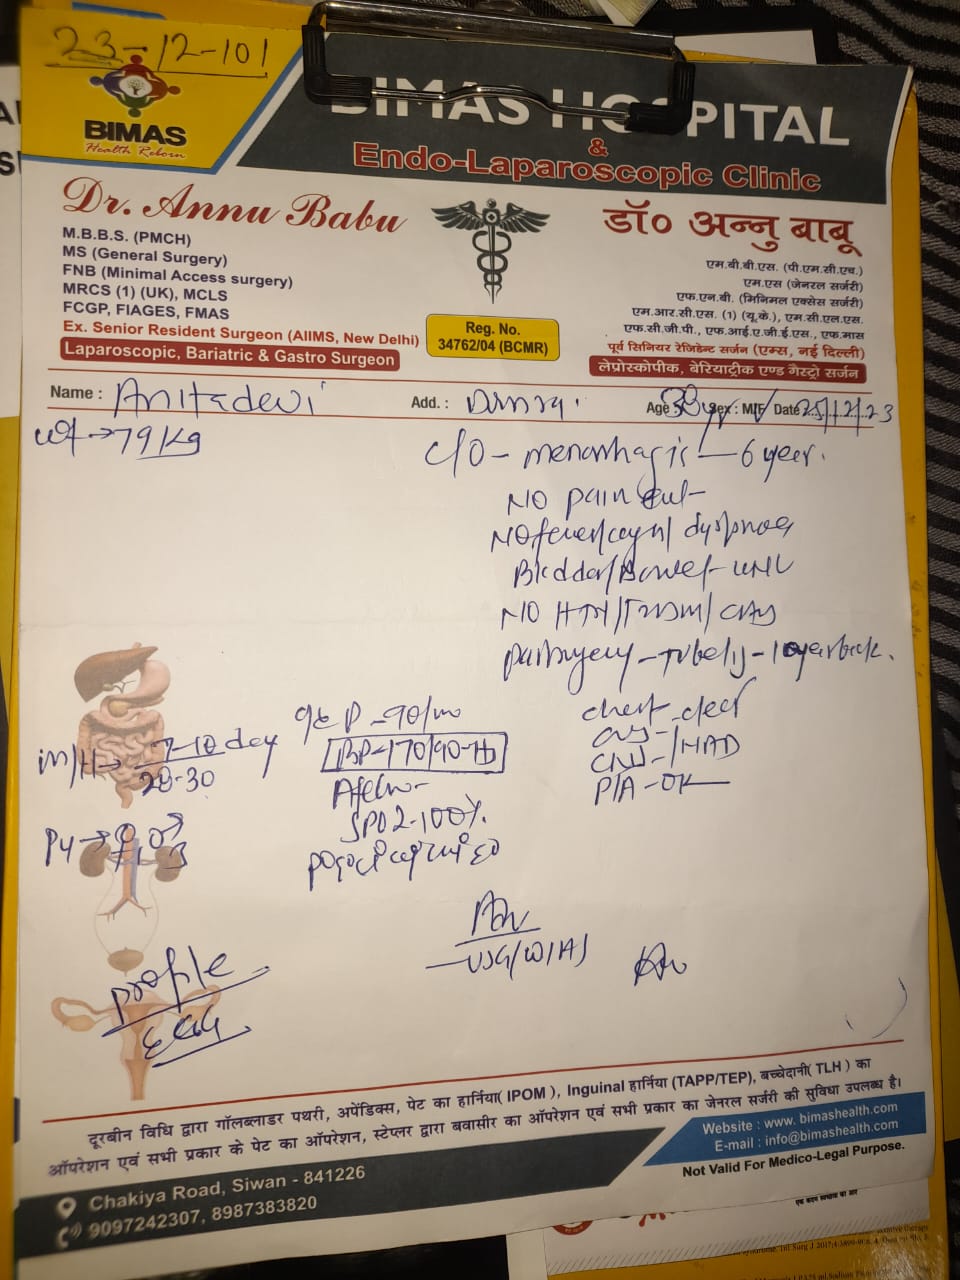 23-12-101
BIMAS
Health Reborn
BIMAS HOSPITAL
&
Endo-Laparoscopic Clinic
Dr. Annu Babu
M.B.B.S. (PMCH)
MS (General Surgery)
FNB (Minimal Access surgery)
MRCS (1) (UK), MCLS
FCGP, FIAGES, FMAS
Ex. Senior Resident Surgeon (AIIMS, New Delhi)
Laparoscopic, Bariatric & Gastro Surgeon
Reg. No.
34762/04 (BCMR)
डॉ० अन्नु बाबू
एम.बी.बी.एस. (पी.एम.सी.एच.)
एम.एस (जेनरल सर्जरी)
एफ.एन.बी. (मिनिमल एक्सेस सर्जरी)
एम.आर.सी.एस. (1) (यू.के.), एम.सी.एल.एस.
एफ.सी.जी.पी., एफ.आई.ए.जी.ई.एस., एफ.मास
पूर्व सिनियर रेजिडेन्ट सर्जन (एम्स, नई दिल्ली)
लेप्रोस्कोपीक, बेरियाट्रीक एण्ड गैस्ट्रो सर्जन
Name : Anita devi Add. : Age 38 Sex : M/F Date 25/12/23
wt → 79 Kg
C/O - menorrhagia - 6 year.
NO pain
NO fever/cough/dyspnoea
Bladder/Bowel -
NO HTN/T2DM/
- Tubely - 10 year back.
M/H → 7-10 day
28-30
P - 90/m
BP - 170/90
SPO2 - 100%.
chest - clear
CVS -
CNS - /NAD
P/A - OK
P4 →
Adv
- USG/W/A
profile
ECG
दूरबीन विधि द्वारा गॉलब्लाडर पथरी, अपेंडिक्स, पेट का हार्निया( IPOM ), Inguinal हार्निया (TAPP/TEP), बच्चेदानी( TLH ) का
ऑपरेशन एवं सभी प्रकार के पेट का ऑपरेशन, स्टेप्लर द्वारा बवासीर का ऑपरेशन एवं सभी प्रकार का जेनरल सर्जरी की सुविधा उपलब्ध है।
Website : www. bimashealth.com
E-mail : info@bimashealth.com
Not Valid For Medico-Legal Purpose.
Chakiya Road, Siwan - 841226
9097242307, 8987383820